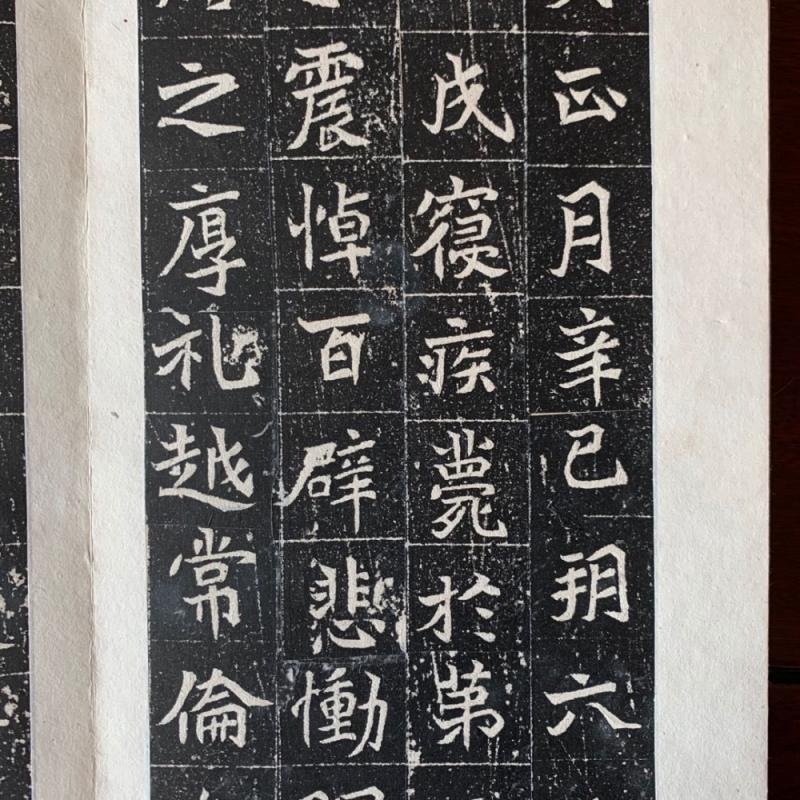 正月辛巳朔六
戌寑疾薨於第
震悼百辟悲慟
之厚礼越常倫